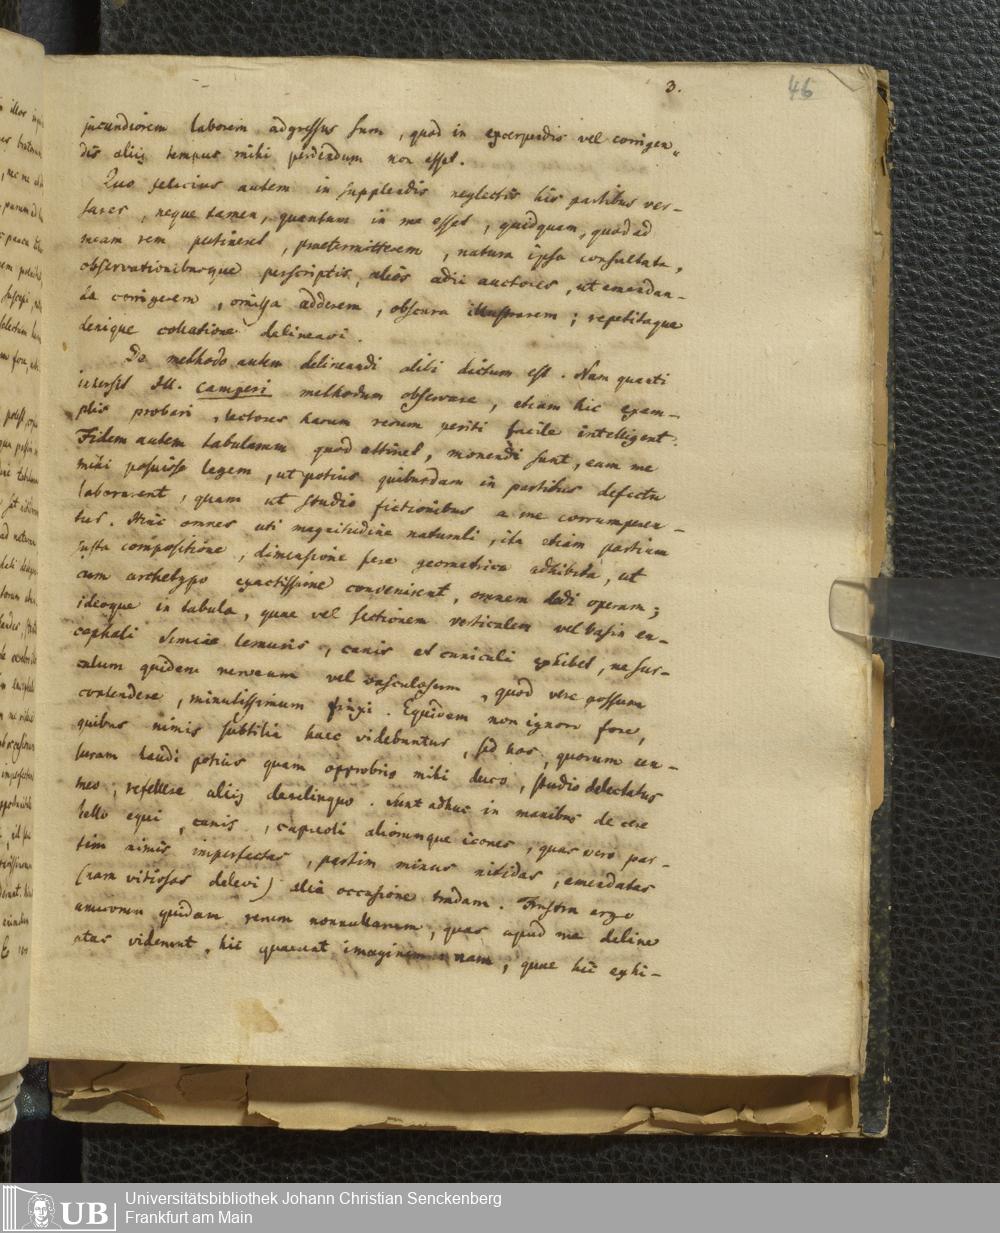 3.
46
jucundiorem laborem adgressus sum, quod in excerpendis vel corrigen„
dis aliis tempus mihi perdendum non esset.
Quo felicius autem in supplendis neglectis his partibus ver-
sarer, neque tamen, quantum in me esset, quidquam, quod ad
meam rem pertineret, praetermitterem, natura ipsa consultata,
observationibusque perscriptis, alios adii auctores, ut emendan-
da corrigerem, omissa adderem, obscura illustrarem; repetitaque
denique collatione delineavi.
De methodo autem delineandi alibi dictum est. Nam quanti
intersit Ill. Camperi methodum observare, etiam hic exem-
plis probari, lectores harum rerum periti facile intelligent.
Fidem autem tabularum quod attinet, monendi sunt, eam me
mihi posuisse legem, ut potius quibusdam in partibus defectu
laborarent, quam ut studio fictionibus a me corrumperen-
tur. Hinc omnes uti magnitudine naturali, ita etiam partium
justa compositione, dimensione fere geometrica adhibita, ut
cum archetypo exactissime convenirent, omnem dedi operam;
ideoque in tabula, quae vel sectionem verticalem vel basin en-
cephali Simiae lemuris, canis et cuniculi exhibet, ne sur-
culum quidem nerveum vel vasculosum, quod vere possum
contendere, minutissimum finxi. Equidem non ignoro fore,
quibus nimis subtilia haec videbuntur, sed hos, quorum cen-
suram laudi potius quam opprobrio mihi duco, studio delectatus
meo, refellere aliis derelinquo. Sunt adhuc in manibus de cere
bello equi, canis, capreoli aliorumque icones, quas vero par-
tim nimis imperfectas, partim minus nitidas, emendatas
(nam vitiosas delevi) alia occasione tradam. Frustra ergo
amicorum quidam rerum nonnullarum, quas apud me deline
atas viderunt, hic quaerat imaginem nam, quae hic exhi-
Universitätsbibliothek Johann Christian Senckenberg
Frankfurt am Main
UB